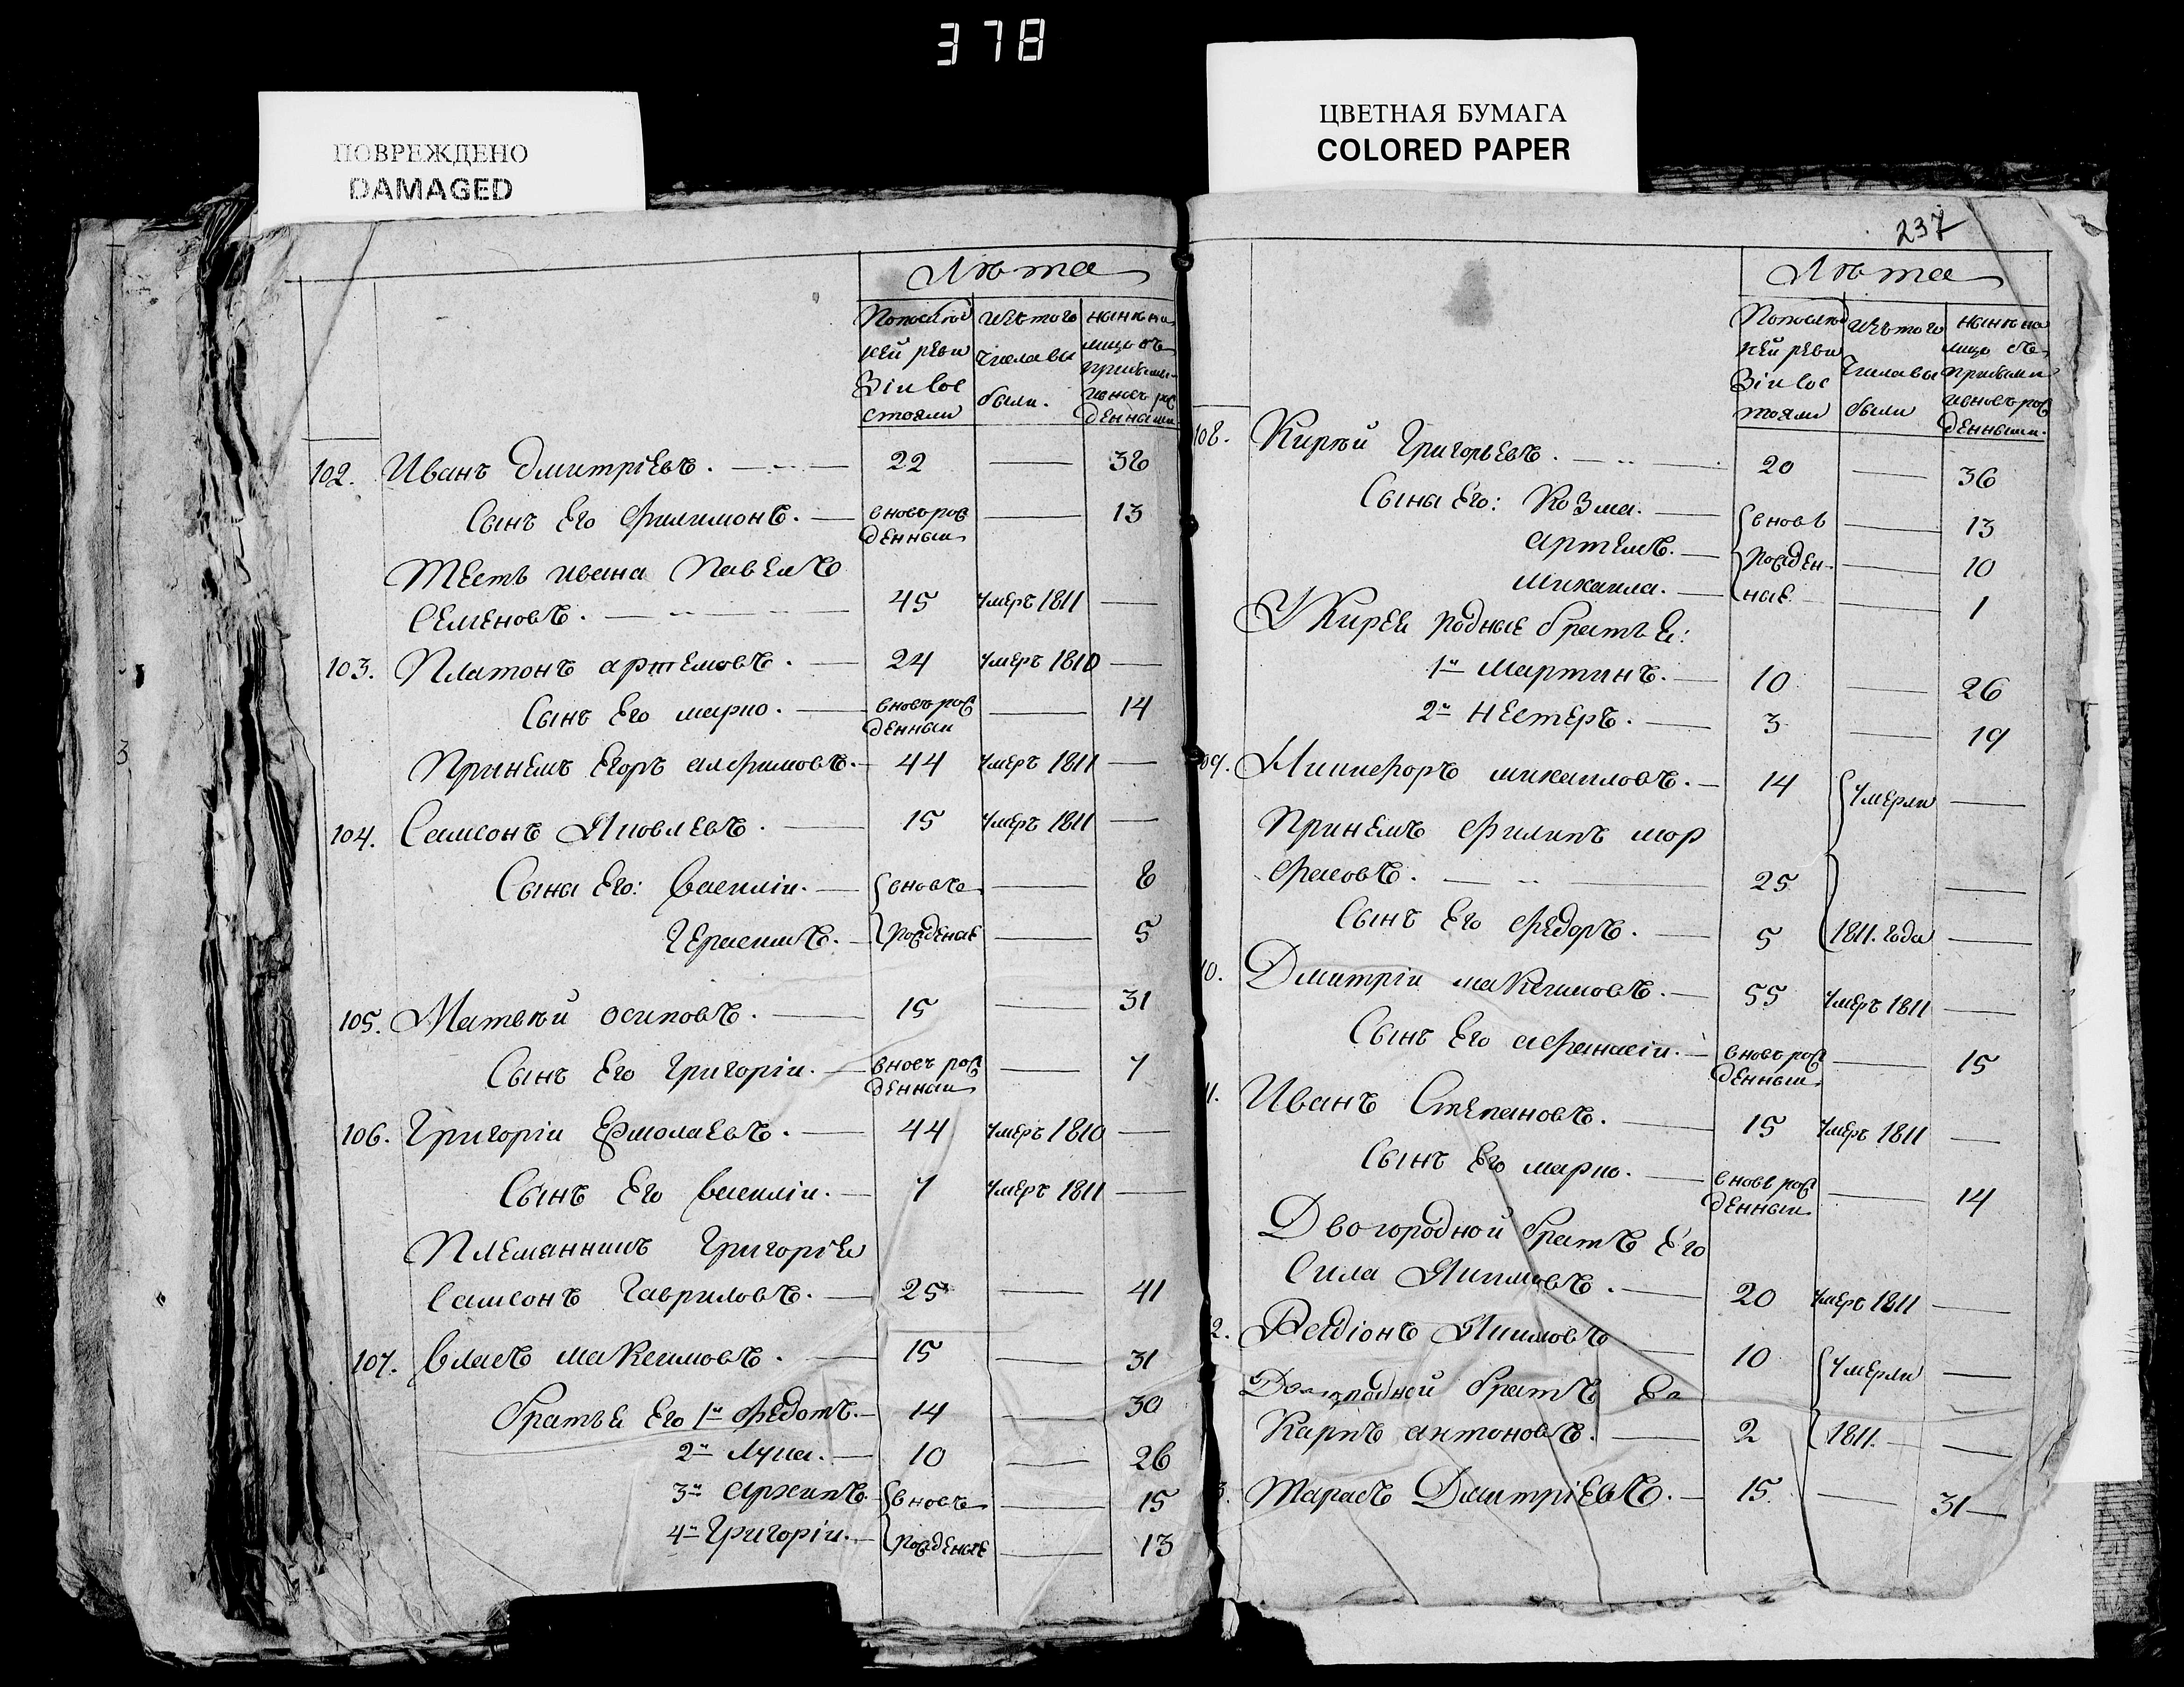 378
ПОВРЕЖДЕНО
DAMAGED
ЦВЕТНАЯ БУМАГА
COLORED PAPER
Лѣта
По послѣд
ней реви
зіи сос
стояли
изъ того
числа вы
были.
нынѣ на
лицо съ
прибылы
и вновь рож
денными
102. Иванъ Дмитріевъ. 22 — 38
Сынъ Его Филимонъ. — вновь рож
денныи — 13
Тесть Ивана Павелъ
Семеновъ. — 45 умеръ 1811 —
103. Платонъ Артемовъ. — 24 умеръ 1810 —
Сынъ Его Марко. — вновь рож
денныи — 14
Приемъ Егоръ Алфимовъ. — 44 умеръ 1811 —
104. Самсонъ Яковлевъ. — 15 умеръ 1811 —
Сына Его: Василіи. — вновь — 8
Герасимъ. — рожденые — 5
105. Матвѣй Осиповъ. — 15 — 31
Сынъ Его Григоріи. — вновь рож
денныи — 7
106. Григоріи Ермолаевъ. — 44 умеръ 1810 —
Сынъ Его Василіи. — 7 умеръ 1811 —
Племянникъ Григорiя
Самсонъ Гавриловъ. — 25 — 41
107. Власъ Максимовъ. — 15 — 31
Братья Его 1й Федотъ. — 14 — 30
2й Лука. — 10 — 26
3й Архипъ. вновь — 15
4й Григоріи. — рожденые — 13
237
Лѣта
По послѣд
ней реви
зіи сос
тояли
изъ того
числа вы
были
нынѣ на
лицо съ
прибылы
и вновь рож
денными.
108. Кирѣй Григорьевъ. — 20 — 36
Сына Его: Козма. — вновь — 13
Артемъ. — рожден — 10
Михаила. — ные — 1
У Кирея родные братья:
1й Мартинъ. — 10 — 26
2й Нестеръ. — 3 — 19
09. Никифоръ Михаиловъ. — 14 умерли —
Приемъ Филипъ Мар
филовъ. — 25 —
Сынъ Его Федоръ. — 5 1811. года —
10. Дмитріи Максимовъ. — 55 умеръ 1811 —
Сынъ Его Афанасіи. — вновь рож
денныи — 15
11. Иванъ Степановъ. — 15 умеръ 1811 —
Сынъ Его Марко. — вновь рож
денныи — 14
Двогородной братъ Его
Сила Якимовъ. — 20 умеръ 1811 —
2. Якимовъ — 10 умерли —
братъ Ег
Карпъ Антоновъ. — 2 1811. —
3. Тарасъ Дмитріевъ. — 15 — 31